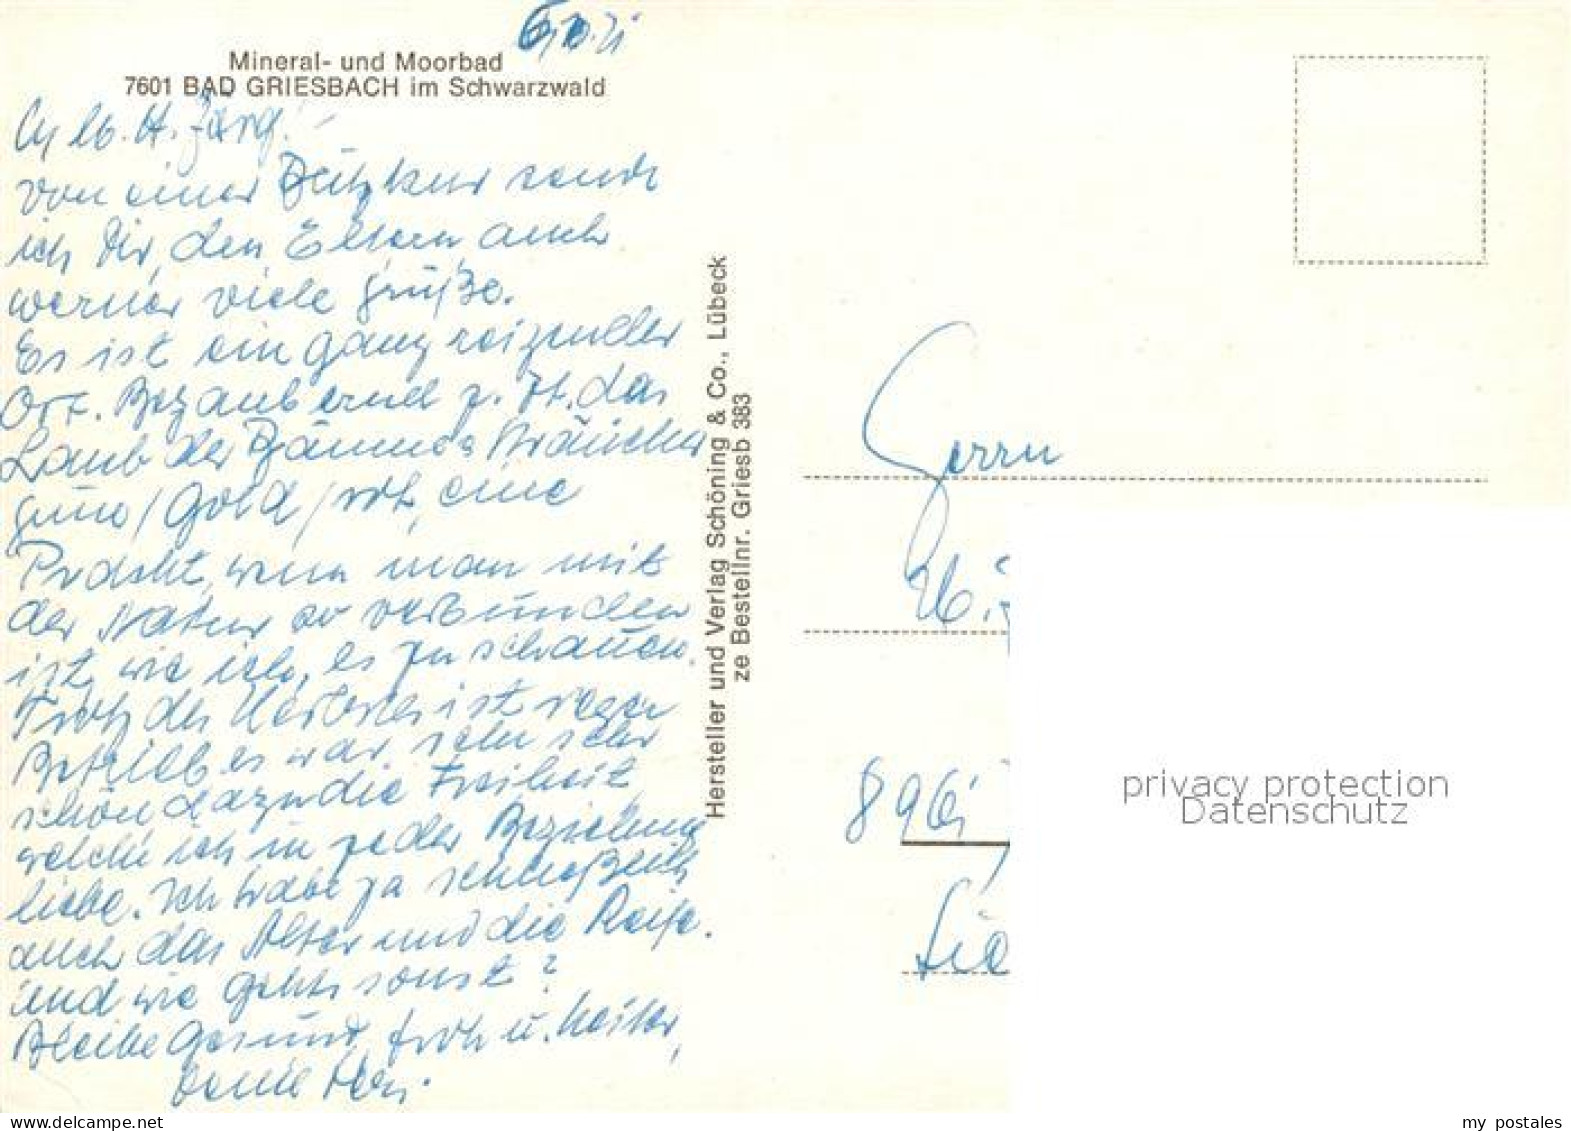 Mineral- und Moorbad
7601 BAD GRIESBACH im Schwarzwald
von einer sende
ich Dir, den Eltern auch
Werner viele Grüße.
Es ist ein ganz reizender
Ort. Bezaubernd z. Zt. das
Laub der Bäume & Sträucher
grün / Gold / rot, eine
Pracht, wenn man mit
der Natur so verbunden
ist, wie ich, es zu schauen.
Trotz des Herbstes ist reger
Betrieb es war sehr sehr
schön dazu die Freiheit
welche ich in jeder Beziehung
liebe. Ich habe ja schließlich
auch das Alter und die Reife.
und wie gehts sonst?
Bleibe Gesund, froh u. heiter,
Hersteller und Verlag Schöning & Co., Lübeck
ze Bestellnr. Griesb 383
Herrn
896
privacy protection
Datenschutz
my postales
delcampe.net